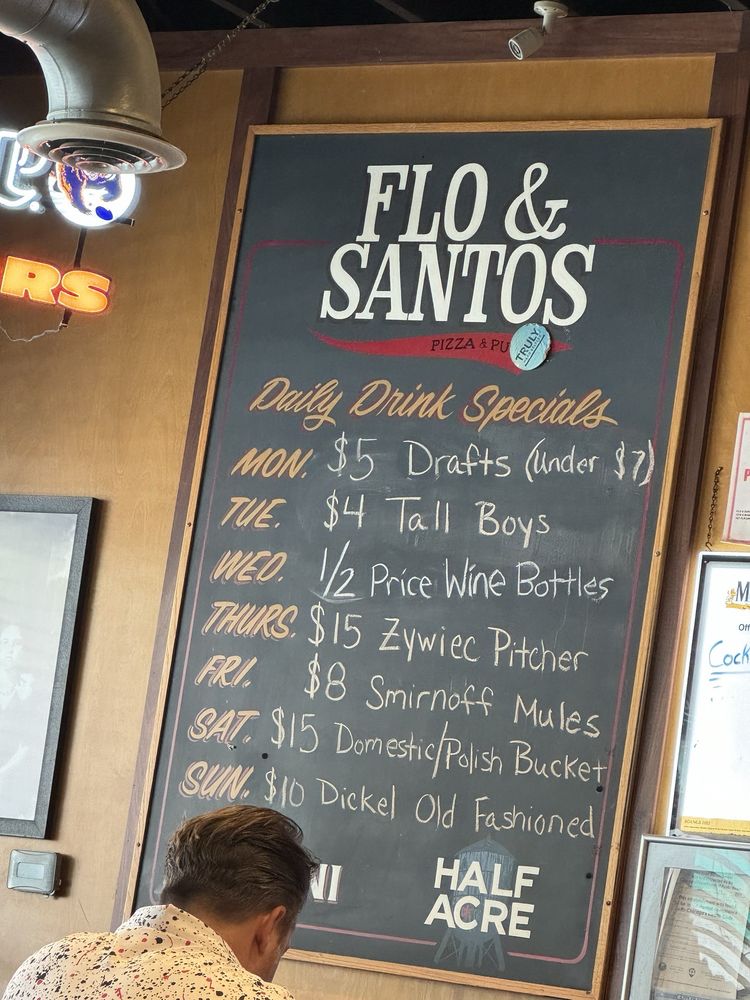 FLO &
SANTOS
PIZZA & PU
TRULY
Daily Drink Specials
MON. $5 Drafts (Under $7)
TUE. $4 Tall Boys
WED. 1/2 Price Wine Bottles
THURS. $15 Zywiec Pitcher
FRI. $8 Smirnoff Mules
SAT. $15 Domestic/Polish Bucket
SUN. $10 Dickel Old Fashioned
NI
HALF
ACRE
RS
Cock